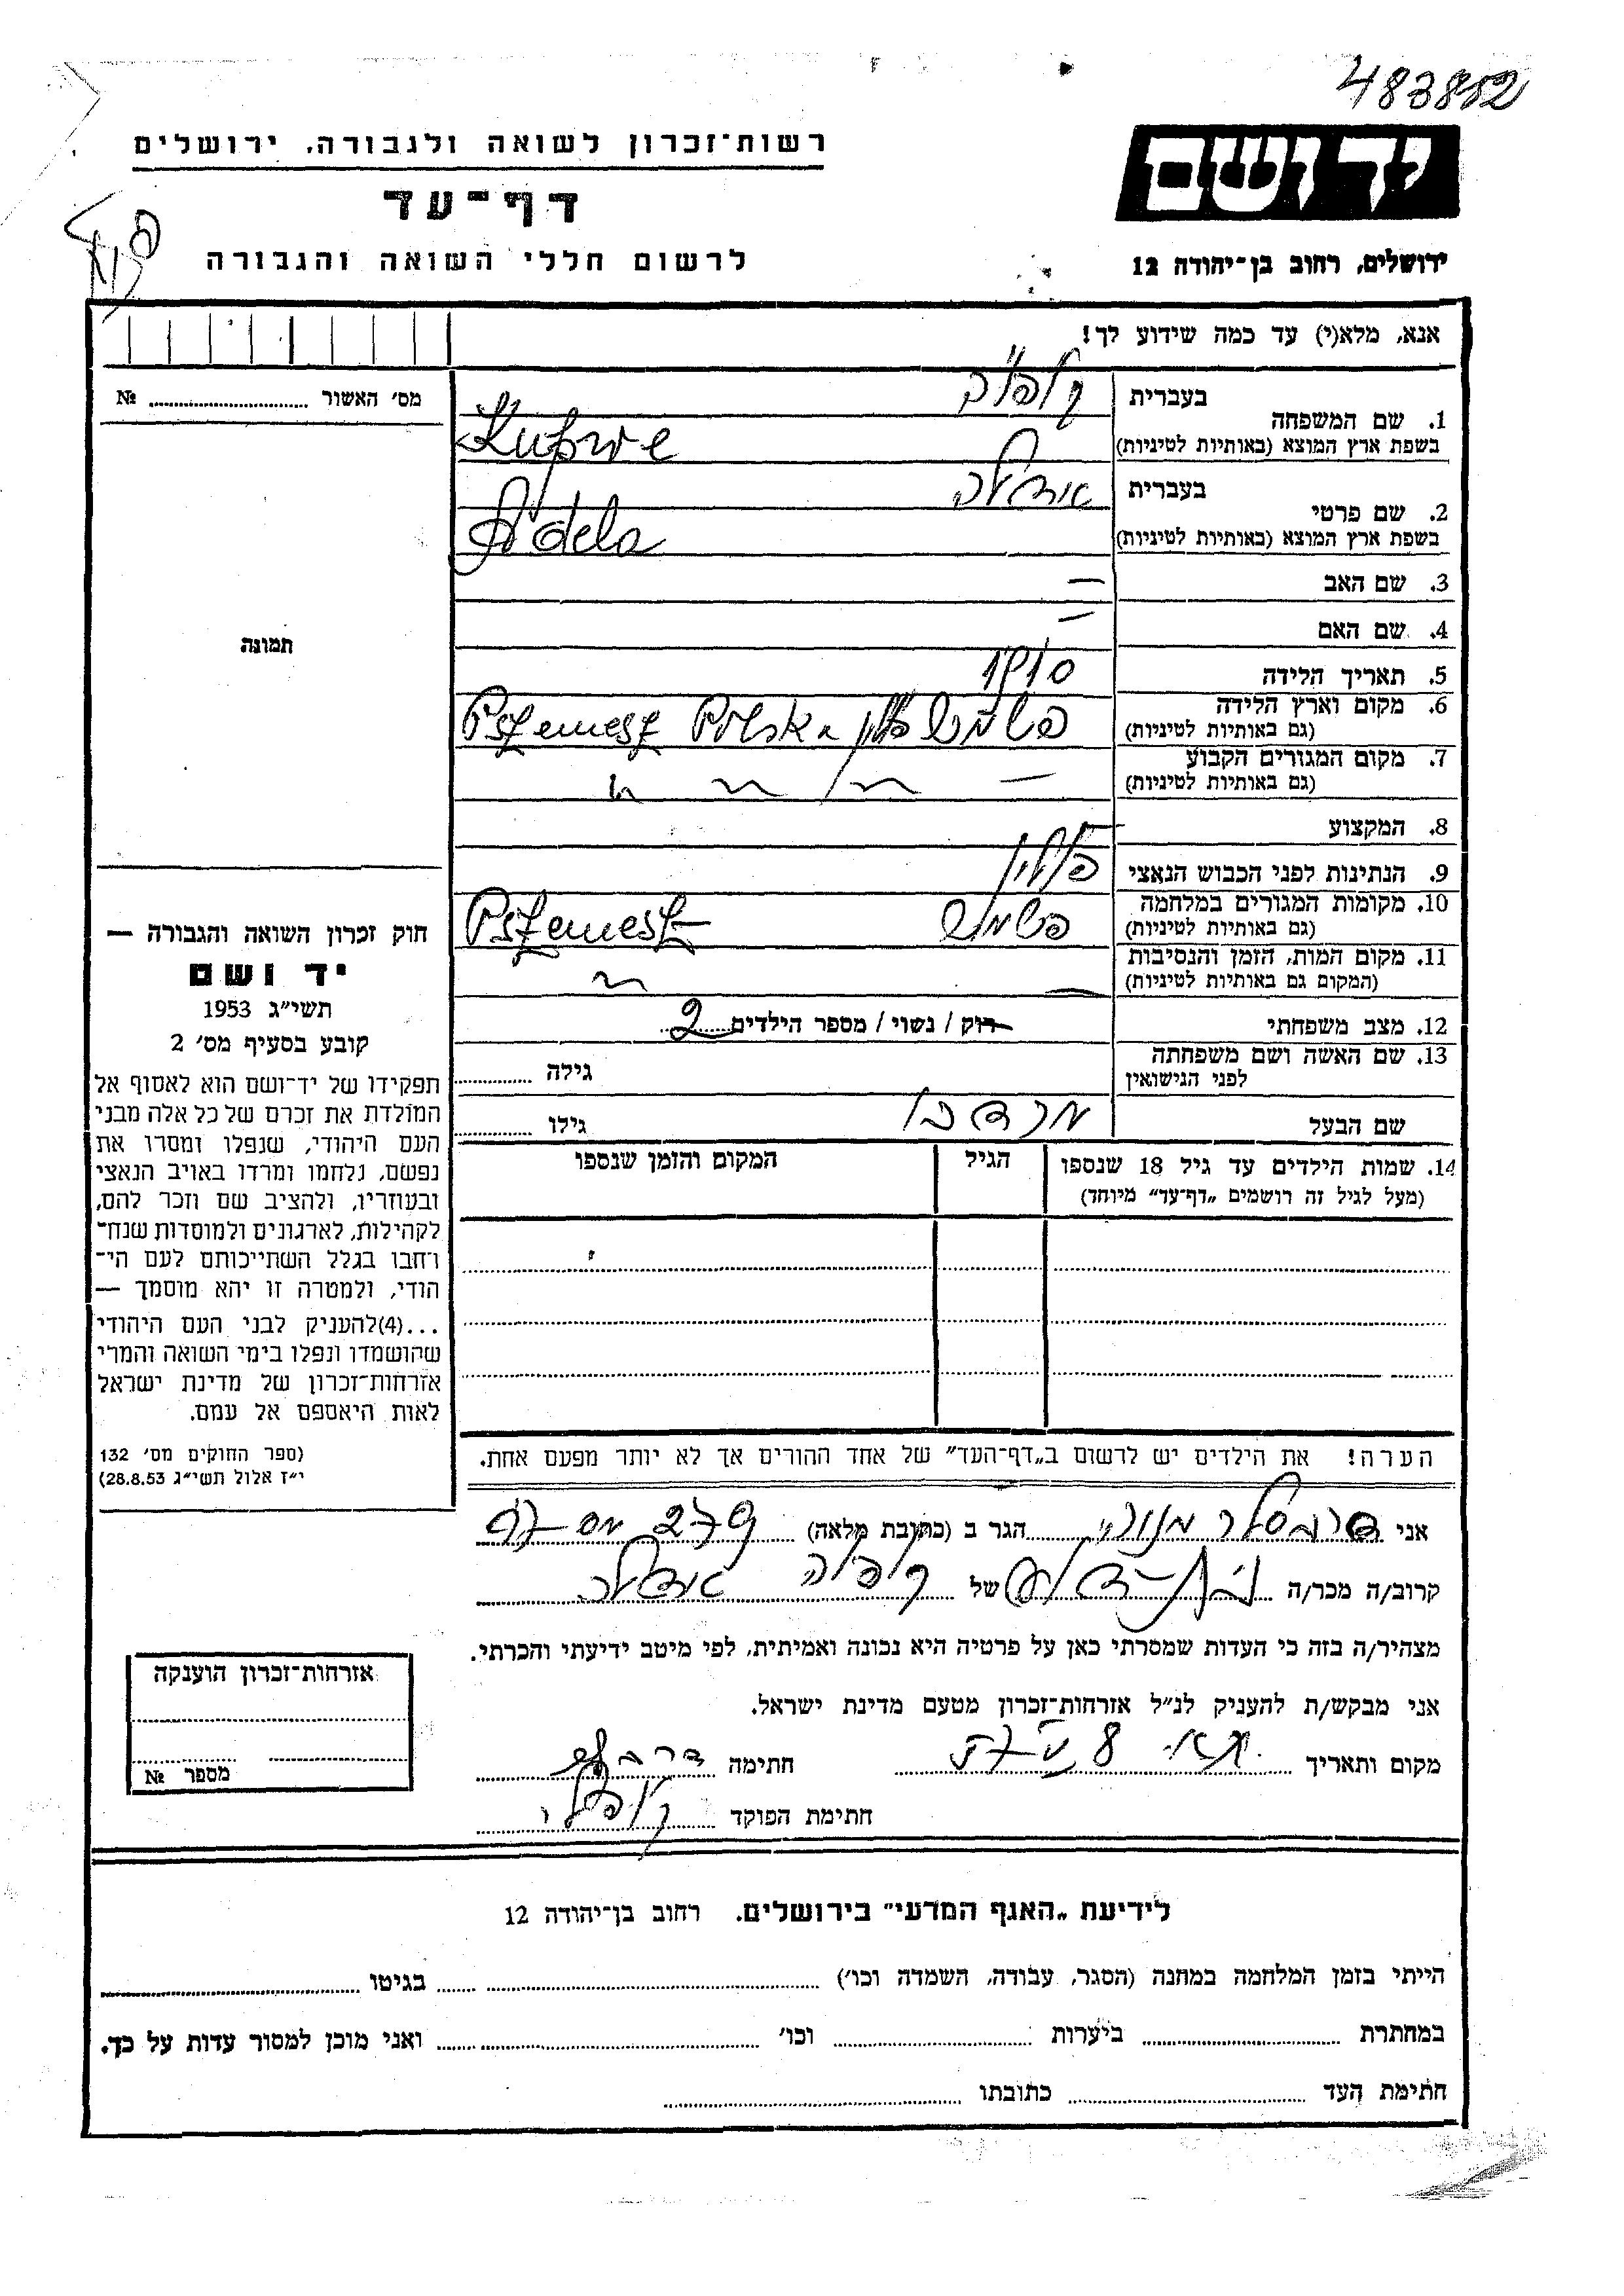 483852
רשות־זכרון לשואה ולגבורה, ירושלים
דף־עד
לרשום חללי השואה והגבורה
יד ושם
ירושלים, רחוב בן־יהודה 12
אנא, מלא(י) עד כמה שידוע לך!
מס׳ האשור № 
1. שם המשפחה
בעברית
בשפת ארץ המוצא (באותיות לטיניות)
2. שם פרטי
בעברית אדלה
בשפת ארץ המוצא (באותיות לטיניות) Adela
3. שם האב —
4. שם האם —
5. תאריך הלידה 1910
6. מקום וארץ הלידה
(גם באותיות לטיניות) Pszemesz Polska
7. מקום המגורים הקבוע
(גם באותיות לטיניות)
8. המקצוע
9. הנתינות לפני הכבוש הנאצי פולין
10. מקומות המגורים במלחמה
(גם באותיות לטיניות) Pszemesz
11. מקום המות, הזמן והנסיבות
(המקום גם באותיות לטיניות)
12. מצב משפחתי רוק / נשוי / מספר הילדים 2
13. שם האשה ושם משפחתה
לפני הנישואין גילה
שם הבעל גילו
14. שמות הילדים עד גיל 18 שנספו
(מעל לגיל זה רושמים „דף־עד״ מיוחד)
הגיל
המקום והזמן שנספו
הערה! את הילדים יש לרשום ב„דף־העד״ של אחד ההורים אך לא יותר מפעם אחת.
תמונה
חוק זכרון השואה והגבורה —
יד ושם
תשי״ג 1953
קובע בסעיף מס׳ 2
תפקידו של יד־ושם הוא לאסוף אל
המולדת את זכרם של כל אלה מבני
העם היהודי, שנפלו ומסרו את
נפשם, נלחמו ומרדו באויב הנאצי
ובעוזריו, ולהציב שם וזכר להם,
לקהילות, לארגונים ולמוסדות שנח־
רחבו בגלל השתייכותם לעם הי־
הודי, ולמטרה זו יהא מוסמך —
...(4)להעניק לבני העם היהודי
שהושמדו ונפלו בימי השואה והמרי
אזרחות־זכרון של מדינת ישראל
לאות היאספם אל עמם.
(ספר החוקים מס׳ 132
י״ז אלול תשי״ג 28.8.53)
אני הגר ב (כתובת מלאה)
קרוב/ה מכר/ה של אדלה
מצהיר/ה בזה כי העדות שמסרתי כאן על פרטיה היא נכונה ואמיתית, לפי מיטב ידיעתי והכרתי.
אני מבקש/ת להעניק לנ״ל אזרחות־זכרון מטעם מדינת ישראל.
מקום ותאריך חתימה
חתימת הפוקד
אזרחות־זכרון הוענקה
מספר №
לידיעת „האגף המדעי״ בירושלים. רחוב בן־יהודה 12
הייתי בזמן המלחמה במחנה (הסגר, עבודה, השמדה וכו׳) בגיטו
במחתרת ביערות וכו׳ ואני מוכן למסור עדות על כך.
חתימת העד כתובתו